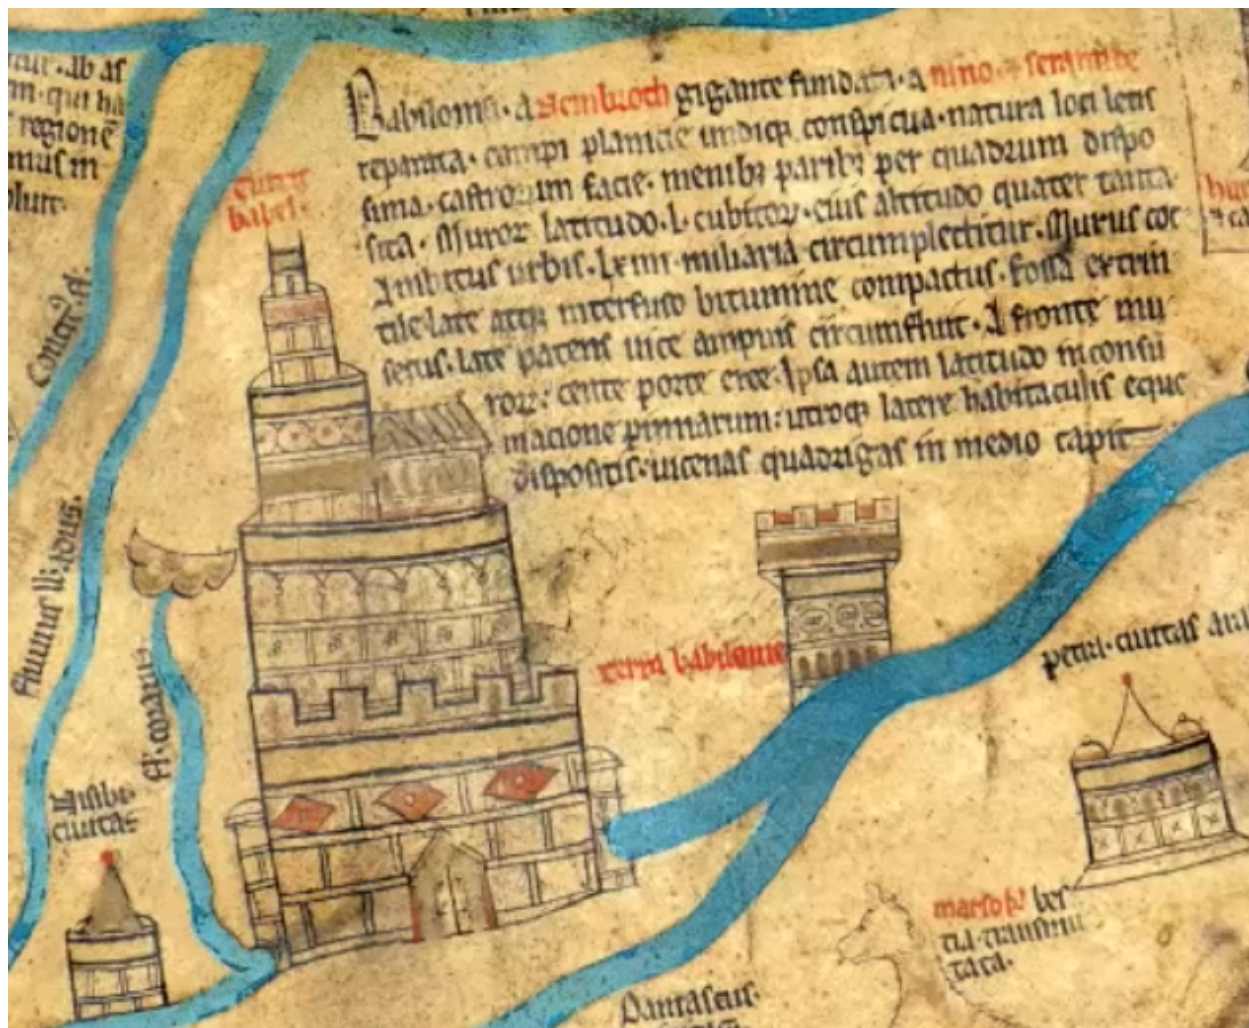 tur·ab as
m·qui ha
regione
mus in
oluit·
Babilonia· a Nembroth gigante fundata· a nino·
reparata· campi planicie undiqꝫ conspicua·natura loci letis
sima·castrorum facie· menibꝫ paribꝫ per quadrum dispo
sita· Muroꝝ latitudo·L·cubitoꝝ·cuius altitudo quater tanta·
Ambitus urbis·Lxiiii·miliaria circumplectitur·Murus coc
tile late atqꝫ interfuso bitumine compactus·fossa extrin
secus·late patens uice ampnis circumfluit·A fronte mu
roꝝ: cente porte eree·Ipsa autem latitudo in consu
macione pinnarum: utroqꝫ latere habitaculis eque
dispositis·uicenas quadrigas in medio capit
turris
babel·
fluuius
terra babilonie
petri·ciuitas
fl·
Nisibi·
ciuitas
marsok: bes
tia·transmu
tata·
Damascus·